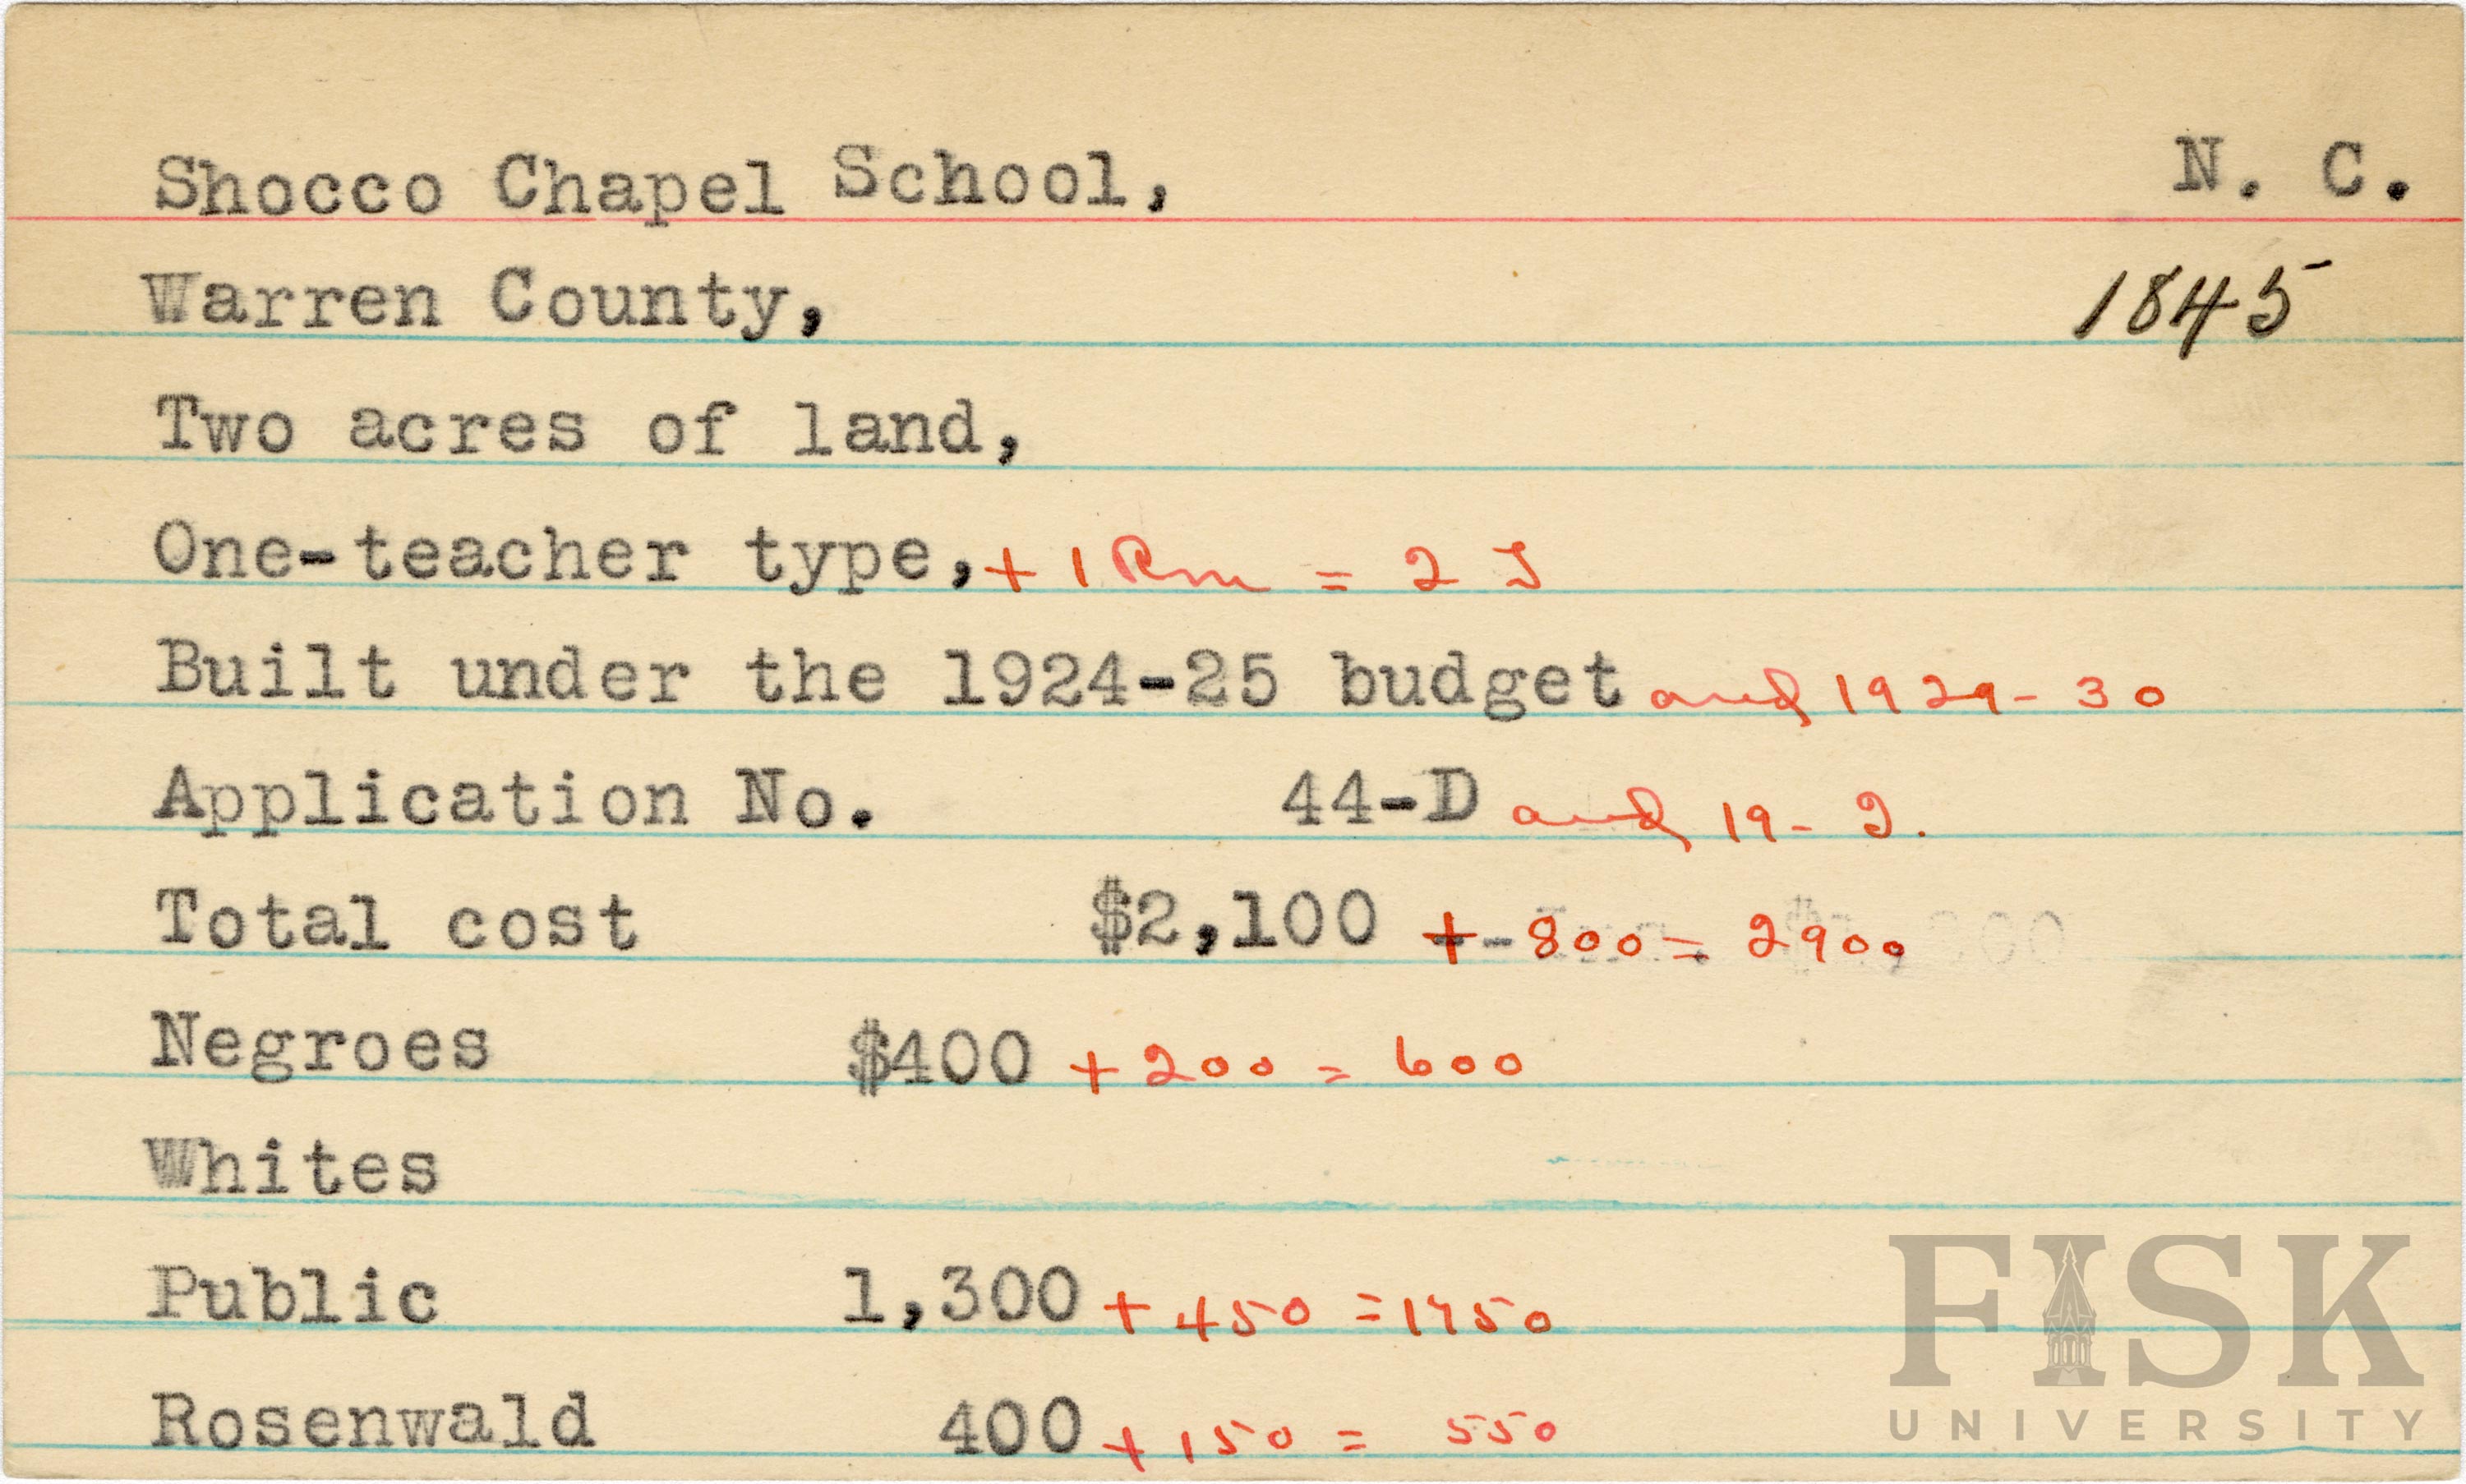 Shocco Chapel School, N. C.
Warren County, 1845
Two acres of land,
One-teacher type, + 1 Rm = 2 T
Built under the 1924-25 budget and 1929-30
Application No. 44-D and 19-
Total cost $2,100 + 800 = 2900
Negroes $400 + 200 = 600
Whites
Public 1,300 + 450 = 1750
Rosenwald 400 + 150 = 550
FISK
UNIVERSITY